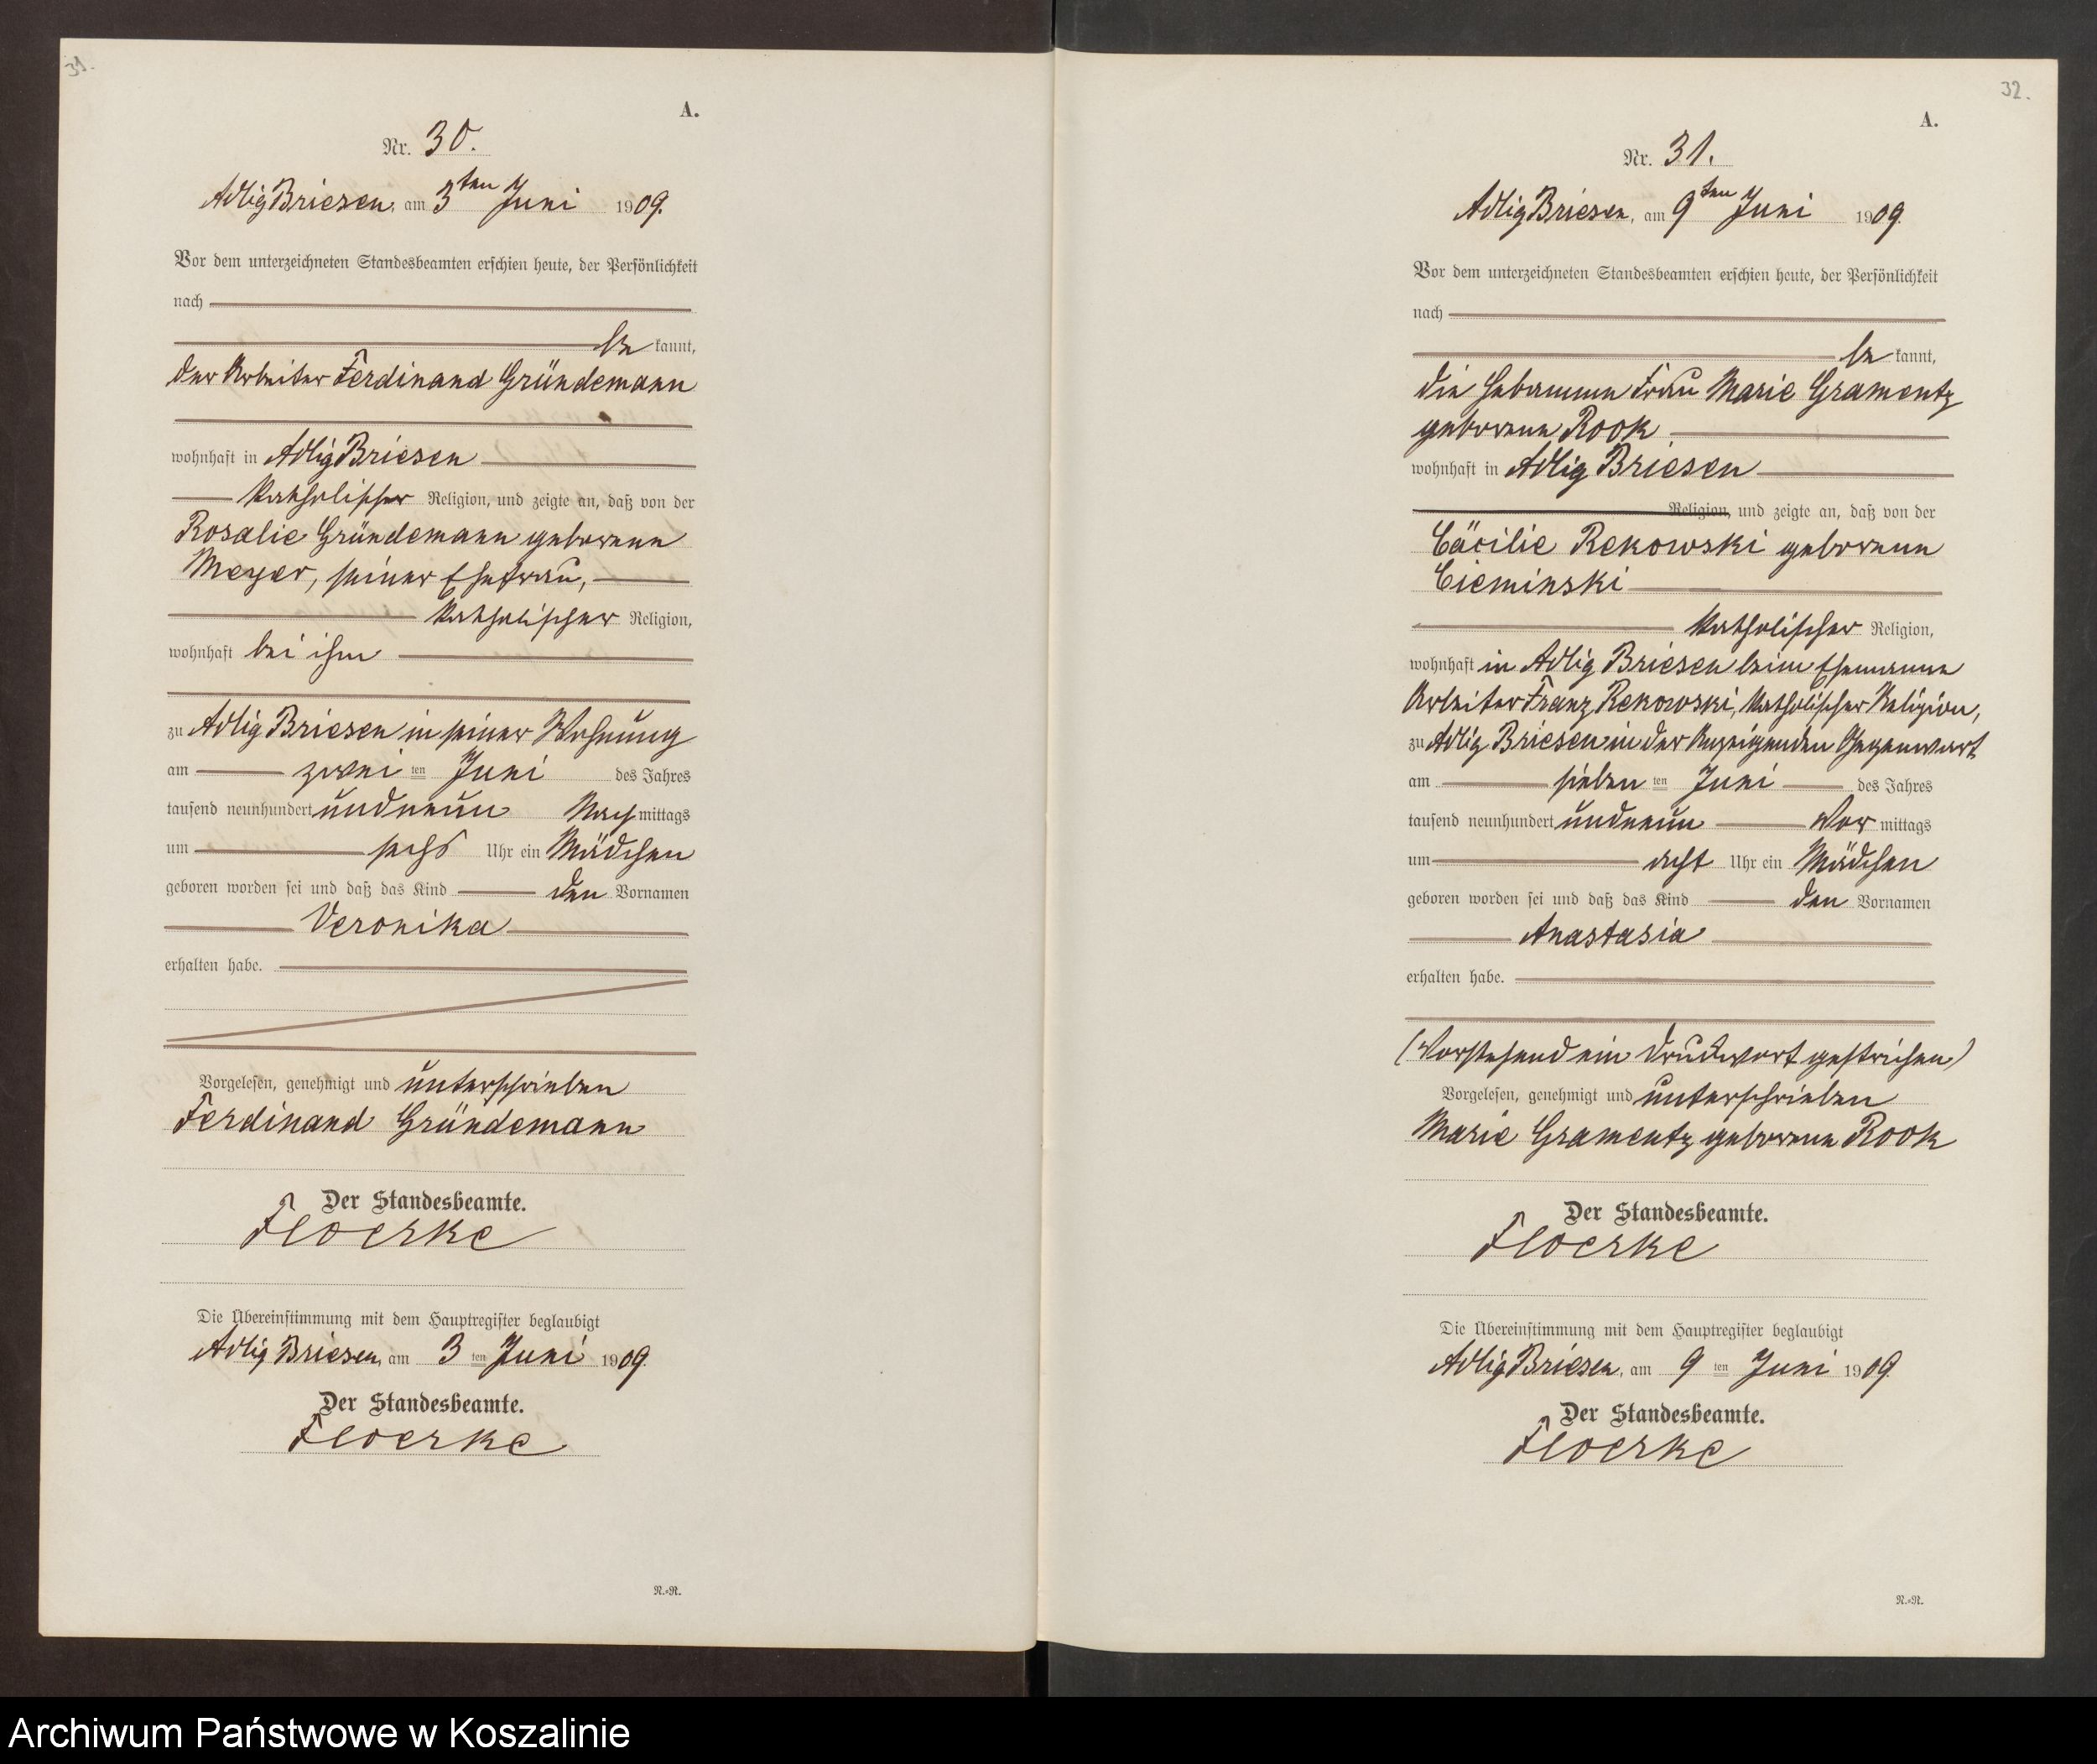 31.
A.
Nr. 30.
Adlig Briesen, am 3ten Juni 1909.
Vor dem unterzeichneten Standesbeamten erschien heute, der Persönlichkeit
nach
be kannt,
der Arbeiter Ferdinand Gründemann
wohnhaft in Adlig Briesen
katholischer Religion, und zeigte an, daß von der
Rosalie Gründemann geborenen
Meyer, seiner Ehefrau,
katholischer Religion,
wohnhaft bei ihm
zu Adlig Briesen in seiner Wohnung
am zwei ten Juni des Jahres
tausend neunhundert undneun Nach mittags
um sechs Uhr ein Mädchen
geboren worden sei und daß das Kind den Vornamen
Veronika
erhalten habe.
Vorgelesen, genehmigt und unterschrieben
Ferdinand Gründemann
Der Standesbeamte.
Floerke
Die Übereinstimmung mit dem Hauptregister beglaubigt
Adlig Briesen, am 3 ten Juni 1909.
Der Standesbeamte.
Floerke
N.=R.
32.
A.
Nr. 31.
Adlig Briesen, am 9ten Juni 1909.
Vor dem unterzeichneten Standesbeamten erschien heute, der Persönlichkeit
nach
be kannt,
die Hebamme Frau Marie Gramentz
geborene Rook
wohnhaft in Adlig Briesen
Religion, und zeigte an, daß von der
Cäcilie Rekowski geborenen
Cieminski
katholischer Religion,
wohnhaft in Adlig Briesen beim Ehemanne
Arbeiter Franz Rekowski, katholischer Religion,
zu Adlig Briesen in der Anzeigenden Gegenwart
am sieben ten Juni des Jahres
tausend neunhundert undneun Vor mittags
um acht Uhr ein Mädchen
geboren worden sei und daß das Kind den Vornamen
Anastasia
erhalten habe.
(Vorstehend ein Druckwort gestrichen)
Vorgelesen, genehmigt und unterschrieben
Marie Gramentz geborene Rook
Der Standesbeamte.
Floerke
Die Übereinstimmung mit dem Hauptregister beglaubigt
Adlig Briesen, am 9 ten Juni 1909
Der Standesbeamte.
Floerke
N.=R.
Archiwum Państwowe w Koszalinie